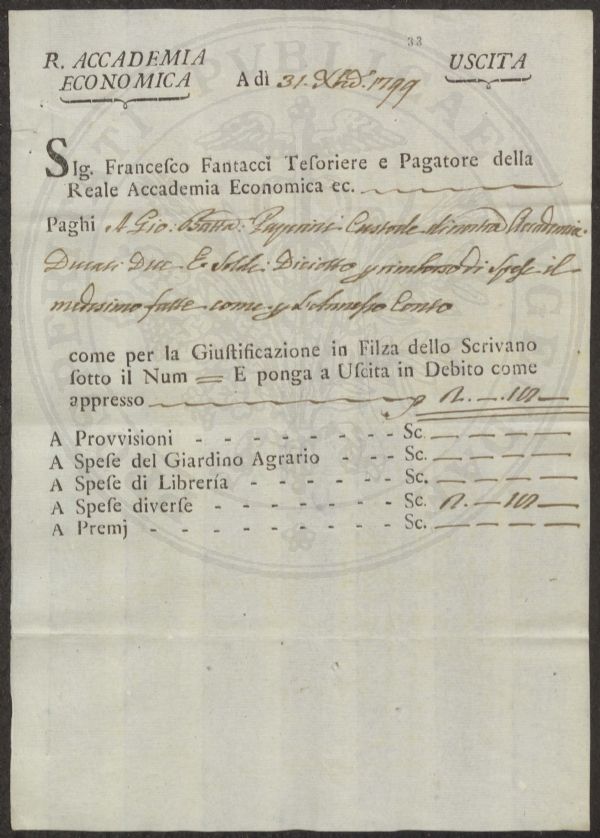 33
R. ACCADEMIA
ECONOMICA
A dì 31. Xbre. 1799
USCITA
SIg. Franceſco Fantacci Teſoriere e Pagatore della
Reale Accademia Economica ec.
Paghi A Gio: Batta: Paperini Custode di nostra Accademia
Ducati Due E Soldi Diciotto p rimborso di spese il
medesimo fatte come p L'Annesso Conto
come per la Giuſtificazione in Filza dello Scrivano
ſotto il Num E ponga a Uſcita in Debito come
appreſſo 2. — 18 —
A Provviſioni - - - - - - - - - Sc. — — — —
A Speſe del Giardino Agrario - - - Sc. — — — —
A Speſe di Librería - - - - - - - Sc. — — — —
A Speſe diverſe - - - - - - - - Sc. 2. — 18 —
A Premj - - - - - - - - - - Sc. — — — —